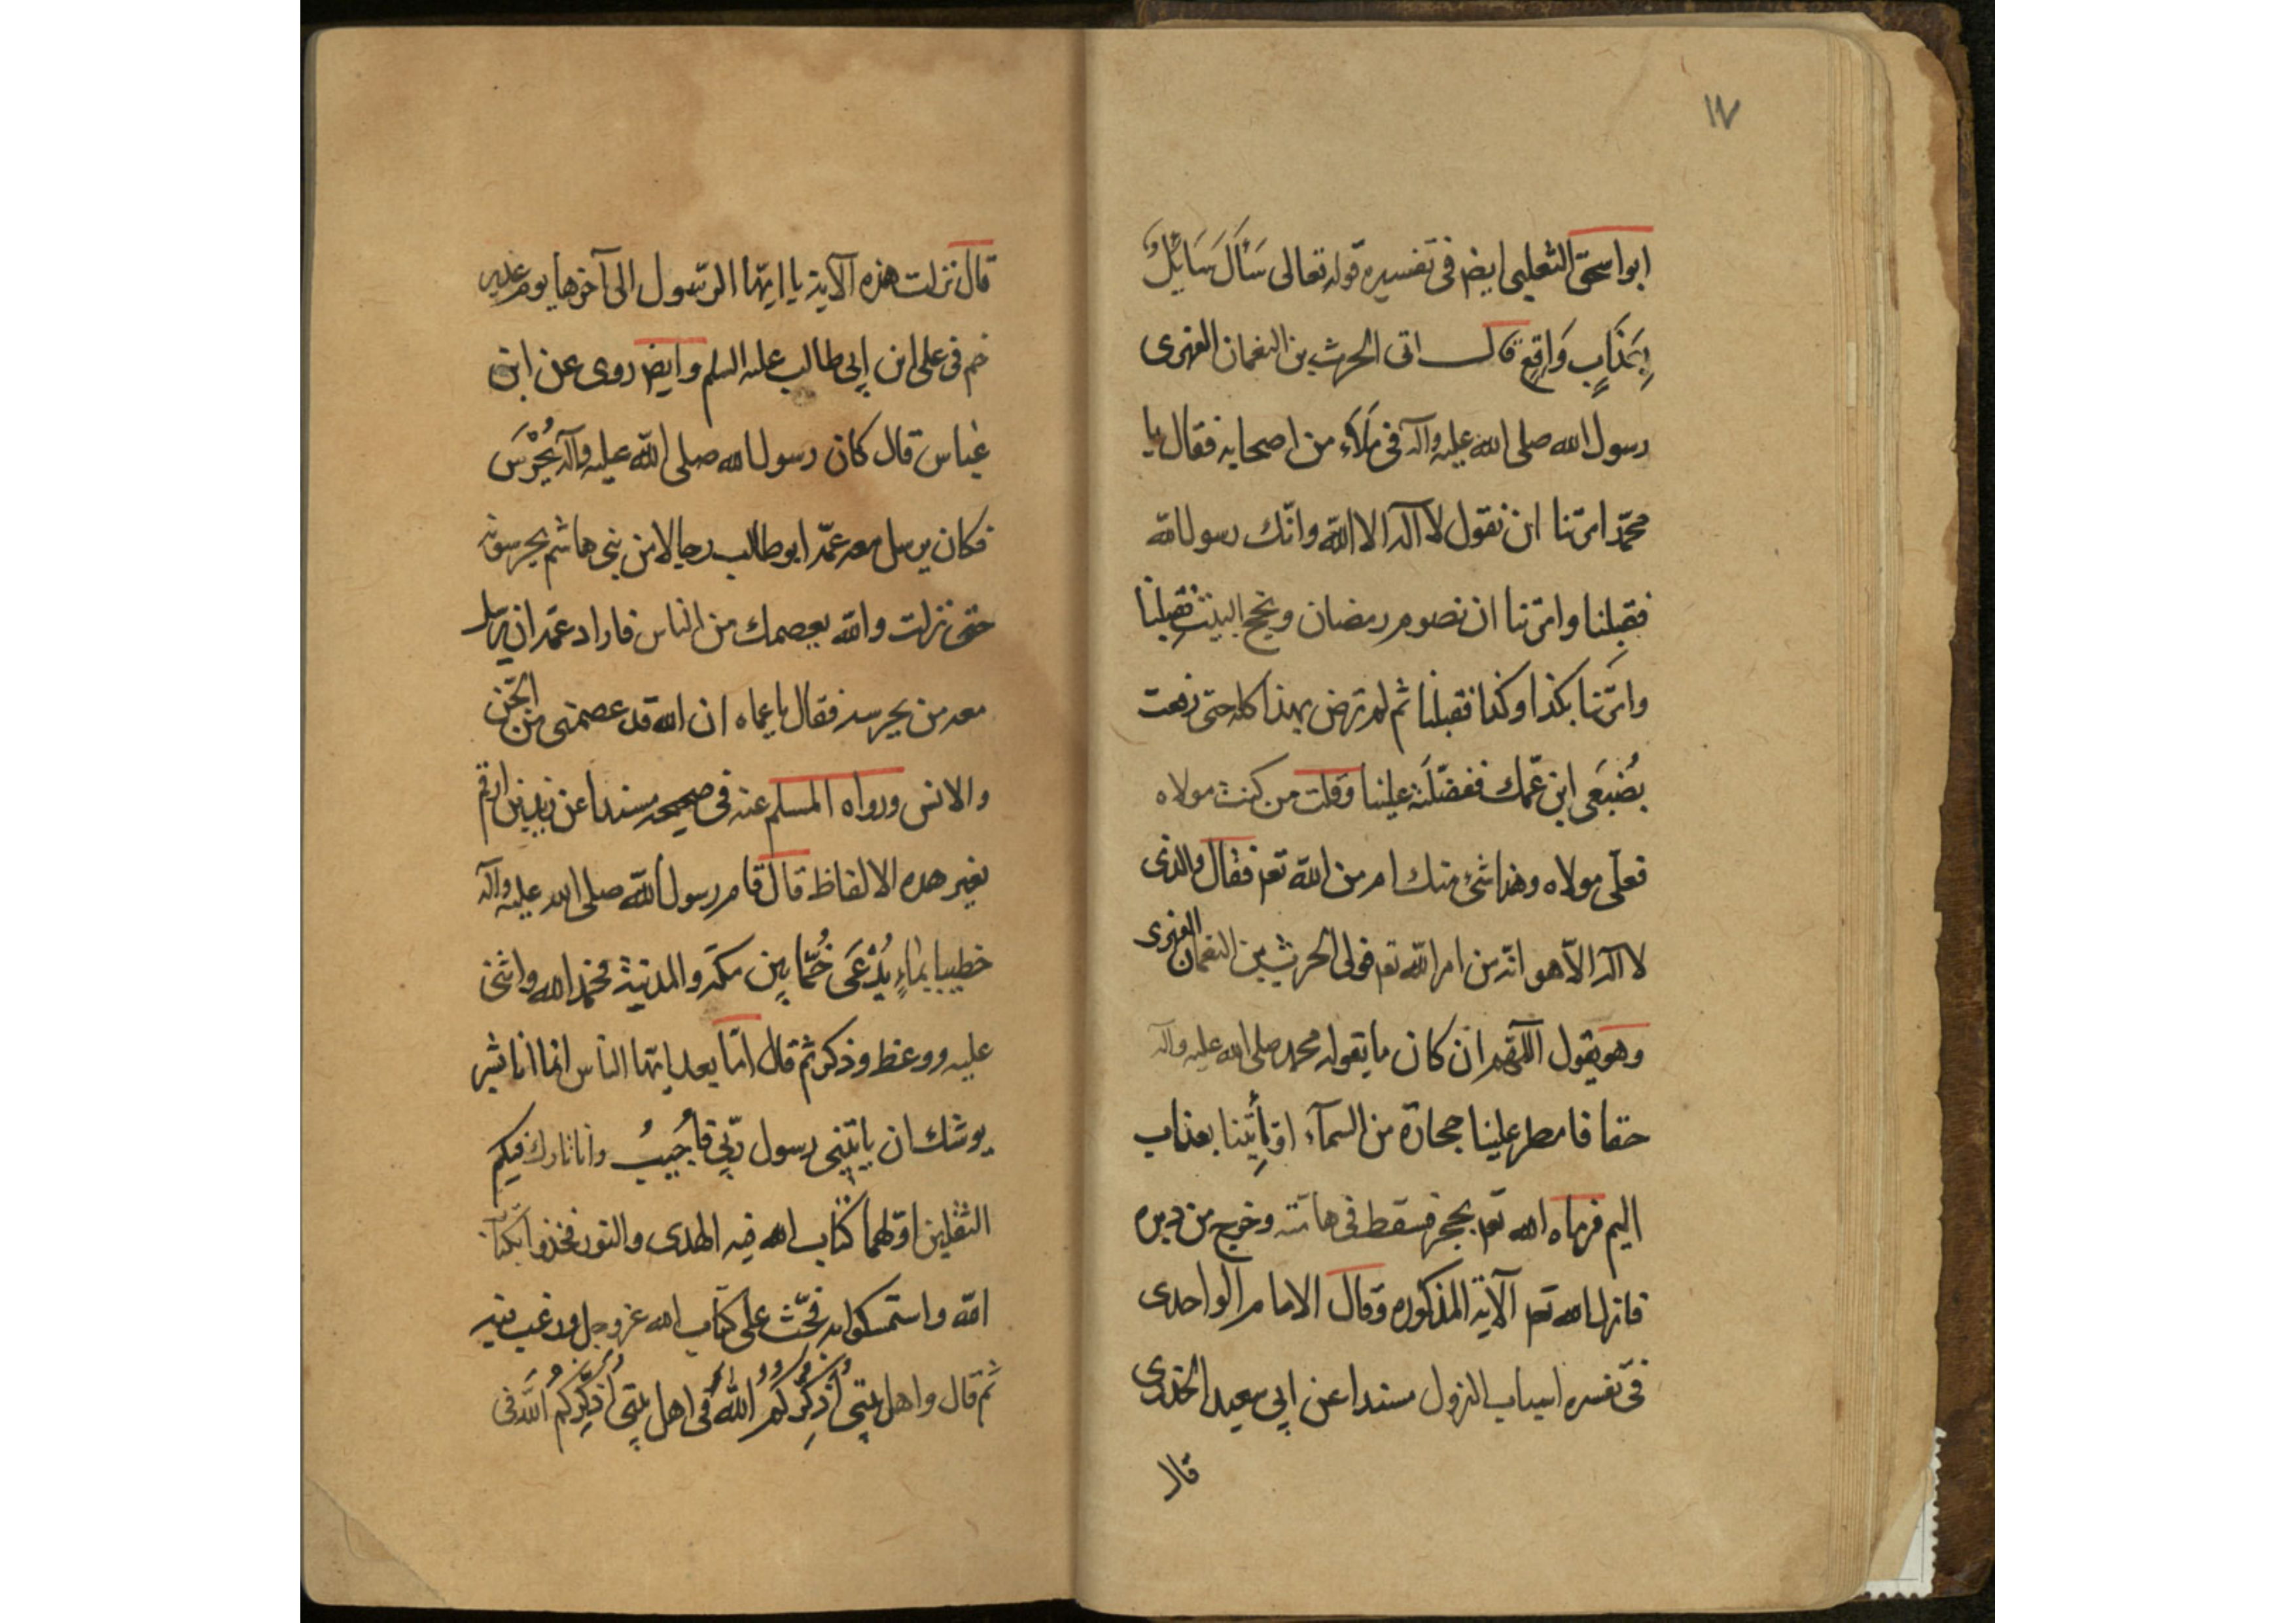 ١٧
ابو اسحق الثعلبى ايض فى تفسيره قوله تعالى سَأَلَ سَائِلٌ
بِعَذَابٍ وَاقِعٍ قال اتى الحرث بن النعمان الفهرى
رسول الله صلى الله عليه وآله فى مَلَاءٍ من اصحابه فقال يا
محمّد امرتنا ان نقول لا اله الا الله وانّك رسول الله
فقبلنا وامرتنا ان نصوم رمضان ونحج البيت فقبلنا
وامرتنا بكذا وكذا فقبلنا ثم لم ترض بهذا كله حتى رفعت
بضُبعَى ابن عمّك ففضّلته علينا وقلت من كنت مولاه
فعلى مولاه وهذا شئ منك ام من الله تعه فقال والذى
لا اله الّا هو انّه من امر الله تعه فولى الحرث بن النعمان الفهرى
وهو يقول اللّهم ان كان ما يقوله محمد صلى الله عليه وآله
حقا فامطر علينا حجارة من السمآء او أْتِنا بعذاب
اليم فرماه الله تعه بحجر فسقط فى هامته وخرج من دبره
فانزل الله تعه الآية المذكوره وقال الامام الواحدى
فى تفسره اسباب النزول مسندا عن ابى سعيد الخدرى
قال
قال نزلت هذه الآية يا ايّها الرّسول الى آخرها يوم غدير
خم فى على ابن ابى طالب عليه السلم وايض روى عن ابن
عباس قال كان رسول الله صلى الله عليه وآله يُحْرَس
فكان يرسل معه عمّه ابو طالب رجالا من بنى هاشم يحرسونه
حتى نزلت والله يعصمك من الناس فاراد عمّه ان يرسل
معه من يحرسه فقال يا عماه ان الله قد عصمنى من الجّن
والانس ورواه المسلم عنه فى صحيحه مسندا عن زيد بن ارقم
بغير هذه الالفاظ قال قام رسول الله صلى الله عليه وآله
خطيبا بمَاءٍ يُدْعَى خُمًّا بين مكّه والمدينة فحمد الله واثنى
عليه ووعظ وذكر ثم قال امّا بعد ايّها الناس انما انا بشر
يوشك ان ياتينى رسول ربّى فأُجيبُ وانا تارك فيكم
الثقلين اوّلهما كتاب الله فيه الهدى والنور فخذوا بكتاب
الله واستمسكوا به فحّث على كتاب الله عز وجل ورغب فيه
ثم قال واهل بيتى أُذَكِّرُكُمُ اللهَ فى اهل بيتى أُذَكِّرُكُم اللَّهَ فى